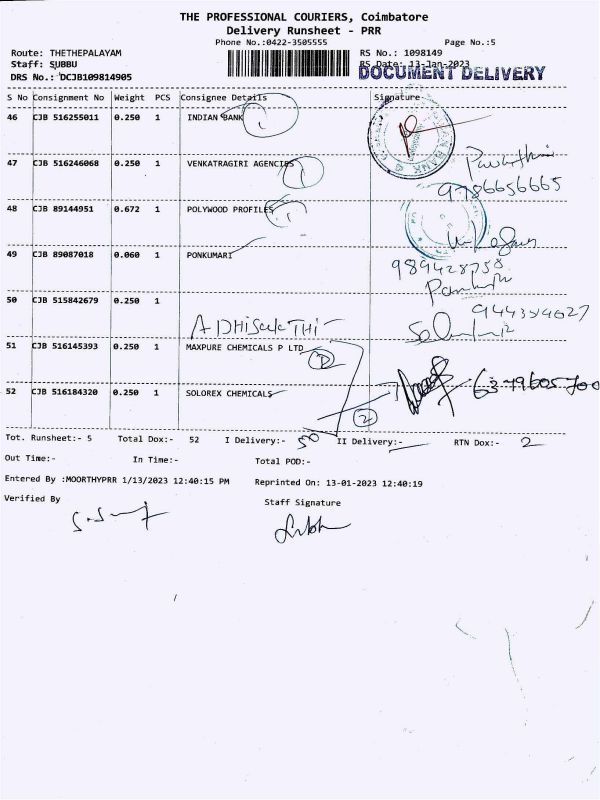 THE PROFESSIONAL COURIERS, Coimbatore
Delivery Runsheet - PRR
Phone No.:0422-3505555 Page No.:5
Route: THETHEPALAYAM RS No.: 1098149
Staff: SUBBU RS Date: 13-Jan-2023
DRS No.: DCJB109814905 DOCUMENT DELIVERY
S No Consignment No Weight PCS Consignee Details Signature
46 CJB 516255011 0.250 1 INDIAN BANK 1
47 CJB 516246068 0.250 1 VENKATRAGIRI AGENCIES 1
9786656665
48 CJB 89144951 0.672 1 POLYWOOD PROFILES 1
49 CJB 89087018 0.060 1 PONKUMARI
9894428758
50 CJB 515842679 0.250 1
ADHISAKTHI
51 CJB 516145393 0.250 1 MAXPURE CHEMICALS P LTD
52 CJB 516184320 0.250 1 SOLOREX CHEMICALS
2
Tot. Runsheet:- 5 Total Dox:- 52 I Delivery:- 50 II Delivery:- RTN Dox:- 2
Out Time:- In Time:- Total POD:-
Entered By :MOORTHYPRR 1/13/2023 12:40:15 PM Reprinted On: 13-01-2023 12:40:19
Verified By Staff Signature